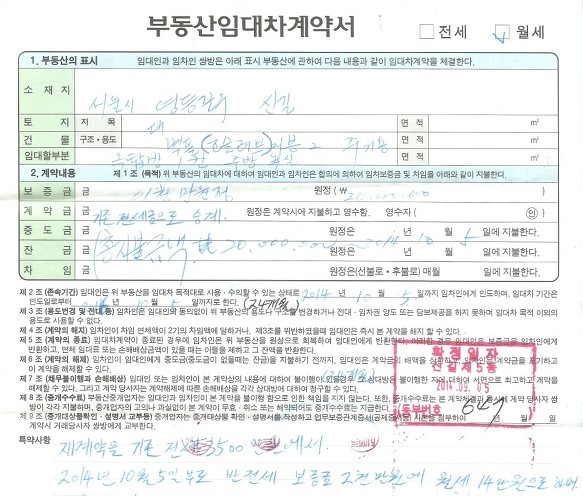 부동산임대차계약서
전세
월세
1. 부동산의 표시 임대인과 임차인 쌍방은 아래 표시 부동산에 관하여 다음 내용과 같이 임대차계약을 체결한다.
소재지 서울시 영등포구 신길
토지 지목 대 면적 ㎡
건물 구조·용도 주거용 면적 ㎡
임대할부분 면적 ㎡
2. 계약내용 제 1 조 (목적) 위 부동산의 임대차에 대하여 임대인과 임차인은 합의에 의하여 임차보증금 및 차임을 아래와 같이 지불한다.
보증금 금 이천만원정 원정 (₩
계약금 금 기존 전세금으로 승계. 원정은 계약시에 지불하고 영수함. 영수자 ( 인)
중도금 금 원정은 2014 년 10 월 5 일에 지불한다.
잔금 금 년 월 일에 지불한다.
차임 금 원정은(선불로·후불로) 매월 일에 지불한다.
제 2 조 (존속기간) 임대인은 위 부동산을 임대차 목적대로 사용·수익할 수 있는 상태로 2014 년 10 월 5 일까지 임차인에게 인도하며, 임대차 기간은
인도일로부터 년 10 월 5 일까지로 한다. (24개월)
제 3 조 (용도변경 및 전대 등) 임차인은 임대인의 동의없이 위 부동산의 용도나 구조를 변경하거나 전대·임차권 양도 또는 담보제공을 하지 못하며 임대차 목적 이외의
용도로 사용할 수 없다.
제 4 조 (계약의 해지) 임차인이 차임 연체액이 2기의 차임액에 달하거나, 제3조를 위반하였을때 임대인은 즉시 본 계약을 해지 할 수 있다.
제 5 조 (계약의 종료) 임대차계약이 종료된 경우에 임차인은 위 부동산을 원상으로 회복하여 임대인에게 반환한다. 이러한 경우 임대인은 보증금을 임차인에게
반환하고, 연체 임대료 또는 손해배상금액이 있을 때는 이들을 제하고 그 잔액을 반환한다.
제 6 조 (계약의 해제) 임차인이 임대인에게 중도금(중도금이 없을때는 잔금)을 지불하기 전까지, 임대인은 계약금의 배액을 상환하고, 임차인은 계약금을 포기하고
이 계약을 해제할 수 있다.
제 7 조 (채무불이행과 손해배상) 임대인 또는 임차인이 본 계약상의 내용에 대하여 불이행이 있을경우 그 상대방은 불이행한 자에 대하여 서면으로 최고하고 계약을
해제할 수 있다. 그리고 계약 당사자는 계약해제에 따른 손해배상을 각각 상대방에 대하여 청구할 수 있다.
제 8 조 (중개수수료) 부동산중개업자는 임대인과 임차인이 본 계약을 불이행 함으로 인한 책임을 지지 않는다. 또한, 중개수수료는 본 계약체결과 동시에 계약 당사자 쌍
방이 각각 지불하며, 중개업자의 고의나 과실없이 본 계약이 무효·취소 또는 해약되어도 중개수수료는 지급한다.
제 9 조 (중개대상물확인·설명서 교부등) 중개업자는 중개대상물 확인·설명서를 작성하고 업무보증관계증서 사본을 첨부하여 년 월 일
계약시 거래당사자 쌍방에게 교부한다.
확정일자
신길제5동
2014. 09. 05
등부번호 649
특약사항
재계약은 기존 전 3500 만원에서.
2014년 10월 5일부로 반전세 보증금 2천만원에 월세 14만원으로